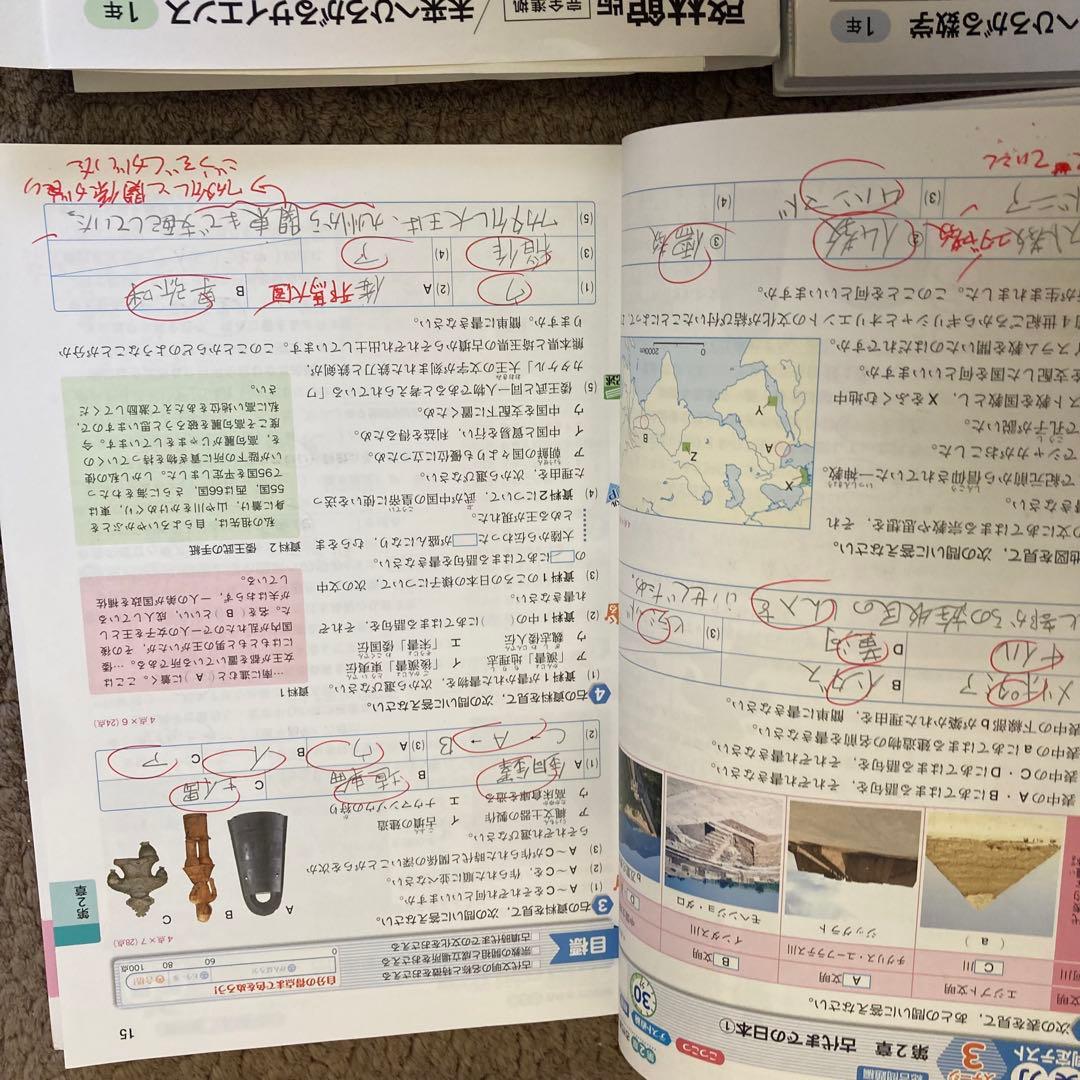 啓林館版
完全準拠
未来へひろがるサイエンス
1年
へひろがる数学
1年
実力
判定テスト
ステージ
3
総合問題編
第2章 古代までの日本①
こつこつ
テスト直前
30分
次の表を見て、あとの問いに答えなさい。
エジプト文明
A 文明
インダス文明
B 文明
C 川
チグリス・ユーフラテス川
インダス川
( a )
ジッグラト
モヘンジョ・ダロ
表中のA・Bにあてはまる語句を、それぞれ書きなさい。
表中のC・Dにあてはまる語句を、それぞれ書きなさい。
表中のaにあてはまる建造物の名前を書きなさい。
表中の下線部bが築かれた理由を、簡単に書きなさい。
B
インダス
D
黄河
(3)
ピラミッド
地図を見て、次の問いに答えなさい。
の文にあてはまる宗教や思想を、それ
書きなさい。
で紀元前から信仰されていた一神教。
でシャカがおこした。
で孔子が説いた。
スト教を国教とし、Xをふくむ地中
を支配した国を何といいますか。
イスラム教を開いたのはだれですか。
前4世紀ごろからギリシャとオリエントの文化が結び付いたことによって
が生まれました。このことを何といいますか。
X
A
Y
Z
B
0
2000km
ユダヤ教
②
仏教
③
儒教
(3)
ムハンマド
(4)
15
目標
古代文明の名称と特徴をおさえる
宗教の開祖と成立場所をおさえる
古墳時代までの文化をおさえる
自分の得点まで色をぬろう!
0
60
80
100点
第2章
3 右の資料を見て、次の問いに答えなさい。
4点×7(28点)
(1) A～Cをそれぞれ何といいますか。
(2) A～Cを、作られた順に並べなさい。
(3) A～Cが作られた時代と関係の深いことがらを次か
らそれぞれ選びなさい。
ア 縄文土器の製作
イ 古墳の建造
ウ 高床倉庫を造る
エ ナウマンゾウの狩り
A
B
C
(1)
A
銅鐸
B
埴輪
C
土偶
(2)
C→A→B
(3)
A
ウ
B
イ
C
ア
4 右の資料を見て、次の問いに答えなさい。
4点×6(24点)
(1) 資料1が書かれた書物を、次から選びなさい。
ア 「漢書」地理志
イ 「後漢書」東夷伝
ウ 魏志倭人伝
エ 「宋書」倭国伝
(2) 資料1中の( )にあてはまる語句を、それぞ
れ書きなさい。
(3) 資料1のころの日本の様子について、次の文中
の にあてはまる語句を書きなさい。
大陸から伝わった が盛んになり、むらをま
とめる王が現れた。
(4) 資料2について、武が中国の皇帝に使いを送っ
た理由を、次から選びなさい。
ア 朝鮮の国々よりも優位に立つため。
イ 中国と貿易を行い、利益を得るため。
ウ 中国を支配下に置くため。
(5) 倭王武と同一人物であると考えられている「ワ
カタケル」大王の文字が刻まれた鉄刀と鉄剣が、
熊本県と埼玉県の古墳からそれぞれ出土しています。このことからどのようなことが分か
りますか。簡単に書きなさい。
資料1
…南に進むと( A )に着く。ここは
女王が都を置いている所である。…倭
にはもともと男の王がいたが、その後
国内が乱れたので一人の女子を王とし
た。名を( B )といい、成人しても
夫がおらず、一人の弟が国政を補佐
している。
資料2 倭王武の手紙
私の祖先は、自らよろいやかぶとを
身に着け、山や川をかけめぐり、東は
55国、西は66国、さらに海をわたっ
て95国を平定しました。しかし私の使
いが陛下の所に貢ぎ物を持っていくの
を、高句麗がじゃまをしています。今
度こそ高句麗を破ろうと思いますので、
私に高い地位をあたえて激励してくだ
さい。
(1)
ウ
(2)
A
邪馬台国
B
卑弥呼
(3)
稲作
(4)
ア
(5)
ワカタケル大王は、九州から関東まで支配していた。